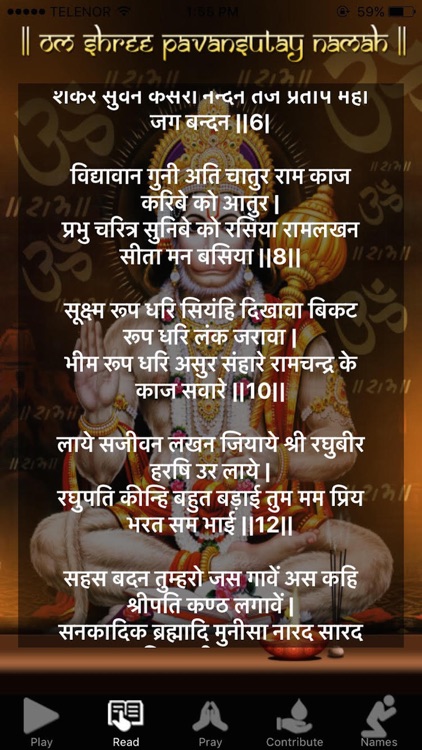 TELENOR
1:59 PM
59%
|| OM SHREE PAVANSUTAY NAMAH ||
शंकर सुवन केसरी नन्दन तेज प्रताप महा
जग बन्दन ||6|
विद्यावान गुनी अति चातुर राम काज
करिबे को आतुर |
प्रभु चरित्र सुनिबे को रसिया रामलखन
सीता मन बसिया ||8||
सूक्ष्म रूप धरि सियंहि दिखावा बिकट
रूप धरि लंक जरावा |
भीम रूप धरि असुर संहारे रामचन्द्र के
काज सवारे ||10||
लाये सजीवन लखन जियाये श्री रघुबीर
हरषि उर लाये |
रघुपति कीन्हि बहुत बड़ाई तुम मम प्रिय
भरत सम भाई ||12||
सहस बदन तुम्हरो जस गावें अस कहि
श्रीपति कण्ठ लगावें |
सनकादिक ब्रह्मादि मुनीसा नारद सारद
Play
Read
Pray
Contribute
Names